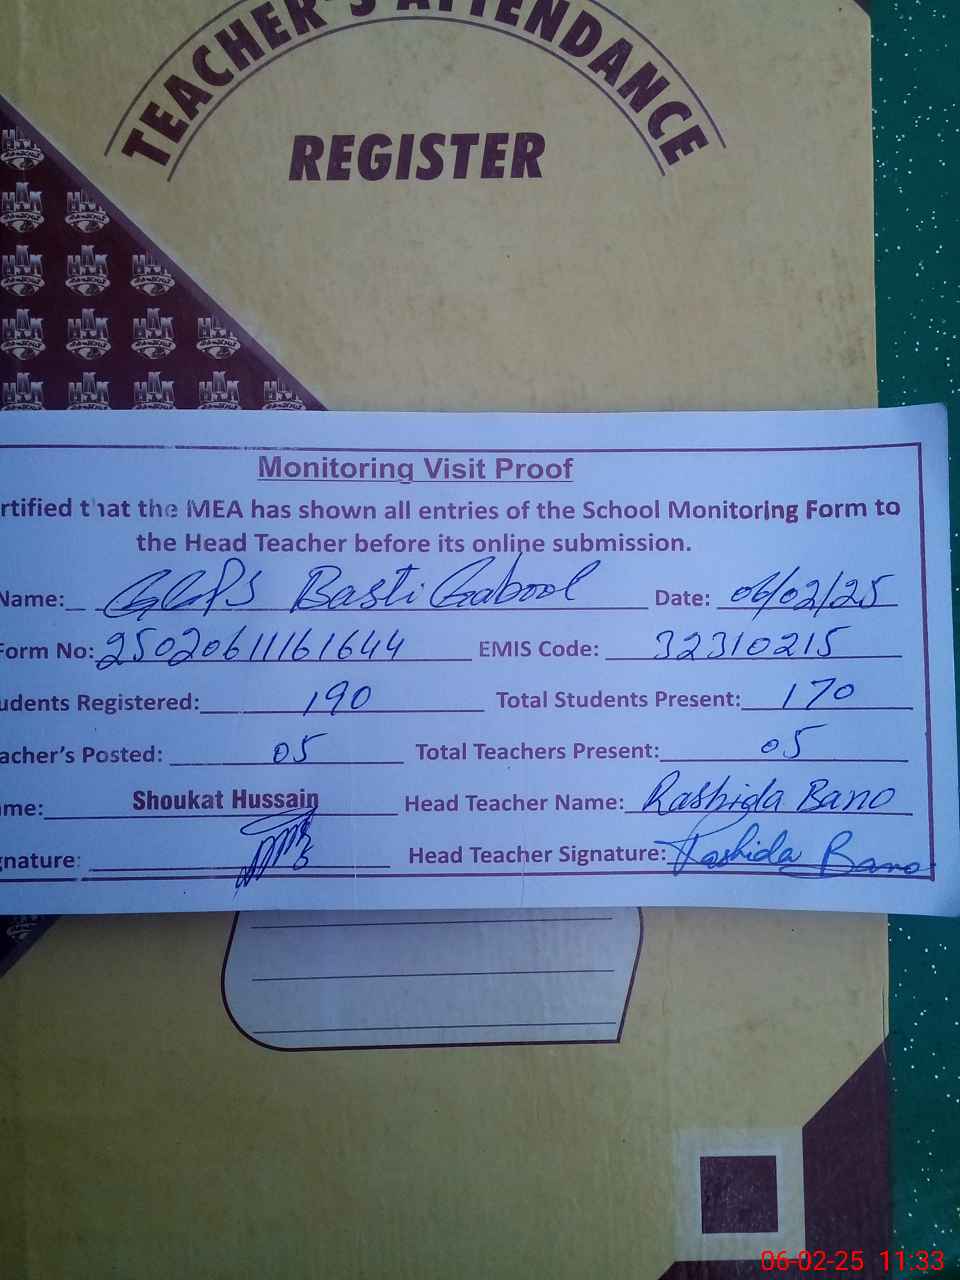 TEACHER'S ATTENDANCE
REGISTER
Monitoring Visit Proof
rtified that the MEA has shown all entries of the School Monitoring Form to
the Head Teacher before its online submission.
Name: GGPS Basti Gabool Date: 06/02/25
Form No: 25020611161644 EMIS Code: 32310215
udents Registered: 190 Total Students Present: 170
acher's Posted: 05 Total Teachers Present: 05
me: Shoukat Hussain Head Teacher Name: Rashida Bano
gnature: Head Teacher Signature: Rashida Bano
06-02-25 11:33